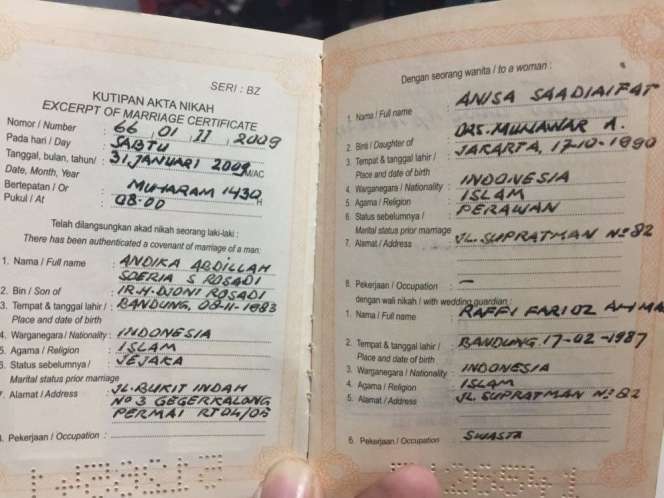 SERI : BZ
KUTIPAN AKTA NIKAH
EXCERPT OF MARRIAGE CERTIFICATE
Nomor / Number : 66, 01, II, 2009
Pada hari / Day : SABTU
Tanggal, bulan, tahun/ : 31 JANUARI 2009 M/AC
Date, Month, Year
Bertepatan / Or : MUHARAM 1430 H
Pukul / At : 08.00
Telah dilangsungkan akad nikah seorang laki-laki :
There has been authenticated a covenant of marriage of a man:
1. Nama / Full name : ANDIKA ABDILLAH
SOERIA S ROSADI
2. Bin / Son of : IR.H. DJONI ROSADI
3. Tempat & tanggal lahir / : BANDUNG, 08-11-1983
Place and date of birth
4. Warganegara / Nationality : INDONESIA
5. Agama / Religion : ISLAM
6. Status sebelumnya / : JEJAKA
Marital status prior marriage
7. Alamat / Address : JL. BUKIT INDAH
No 3 GEGERKALONG
PERMAI RT 04/05
8. Pekerjaan / Occupation :
Dengan seorang wanita / to a woman :
1. Nama / Full name : ANISA SAADIAIFAT
2. Binti / Daughter of : DRS. MUNAWAR A.
3. Tempat & tanggal lahir / : JAKARTA, 17-10-1990
Place and date of birth
4. Warganegari / Nationality : INDONESIA
5. Agama / Religion : ISLAM
6. Status sebelumnya / : PERAWAN
Marital status prior marriage
7. Alamat / Address : JL. SUPRATMAN No 82
8. Pekerjaan / Occupation : -
dengan wali nikah / with wedding guardian :
1. Nama / Full name : RAFFI FARIOZ AHMA
2. Tempat & tanggal lahir / : BANDUNG, 17-02-1987
Place and date of birth
3. Warganegara / Nationality : INDONESIA
4. Agama / Religion : ISLAM
5. Alamat / Address : JL. SUPRATMAN No 82
6. Pekerjaan / Occupation : SWASTA